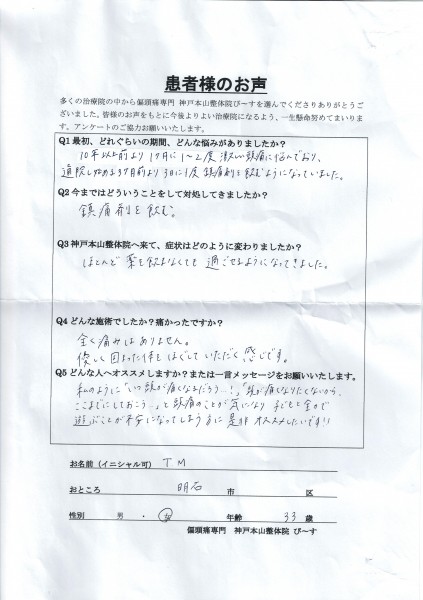 患者様のお声
多くの治療院の中から偏頭痛専門 神戸本山整体院ぴ～すを選んでくださりありがとうご
ざいました。皆様のお声をもとに今後よりよい治療院になるよう、一生懸命努めてまいりま
す。アンケートのご協力お願いいたします。
Q1 最初、どれぐらいの期間、どんな悩みがありましたか？
10年以上前より 1ケ月に 1～2度 激しい頭痛に悩んでおり、
通院し始める3ケ月前より 3日に1度 鎮痛剤を飲むようになっていました。
Q2 今まではどういうことをして対処してきましたか？
鎮痛剤を飲む。
Q3 神戸本山整体院へ来て、症状はどのように変わりましたか？
ほとんど 薬を飲まなくても 過ごせるようになってきました。
Q4 どんな施術でしたか？痛かったですか？
全く痛みはありません。
優しく 固まった体を ほぐして いただく 感じです。
Q5 どんな人へオススメしますか？または一言メッセージをお願いいたします。
私のように「いつ頭が痛くなるだろう…」「頭が痛くなりたくないから、
ここまでにしておこう…」と頭痛のことが気になり 子どもと全力で
遊ぶことが 不安になってしまう方に 是非 オススメしたいです!!
お名前（イニシャル可） T M
おところ 明石 市 区
性別 男 ・ 女 年齢 33 歳
偏頭痛専門 神戸本山整体院 ぴ～す